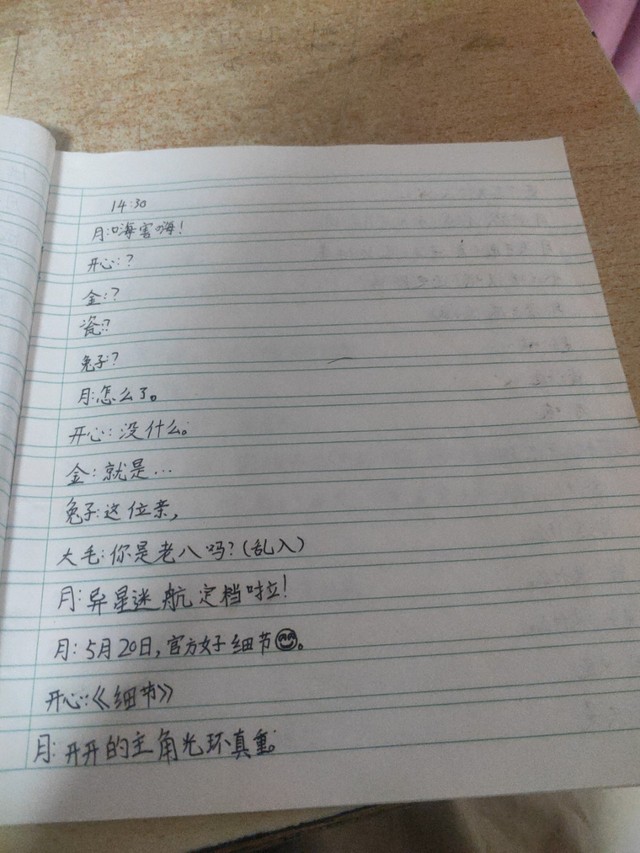 14:30
月:嗨害嗨!
开心:?
金:?
瓷:?
兔子?
月:怎么了。
开心:没什么。
金:就是...
兔子:这位亲,
大毛:你是老八吗?(乱入)
月:异星迷航定档啦!
月:5月20日,官方好细节😊。
开心:《细节》
月:开开的主角光环真重。